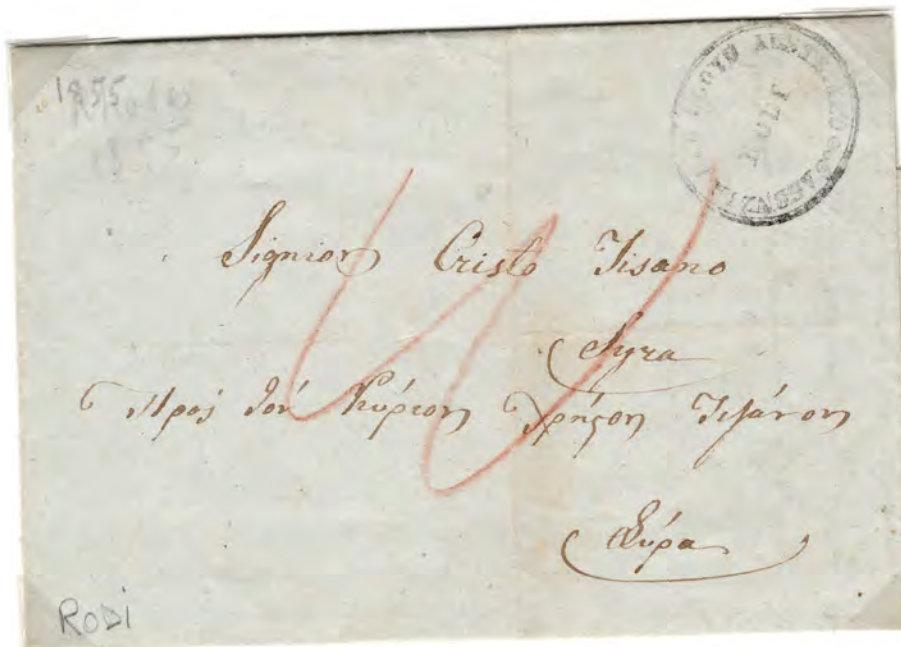 1855
1855
AGENZIA LLOYD AUSTRIACO
Signion Cristo Tisano
Syra
Πρός τόν Κύριον Χρήςον Τισάνον
Σύρα
RODI